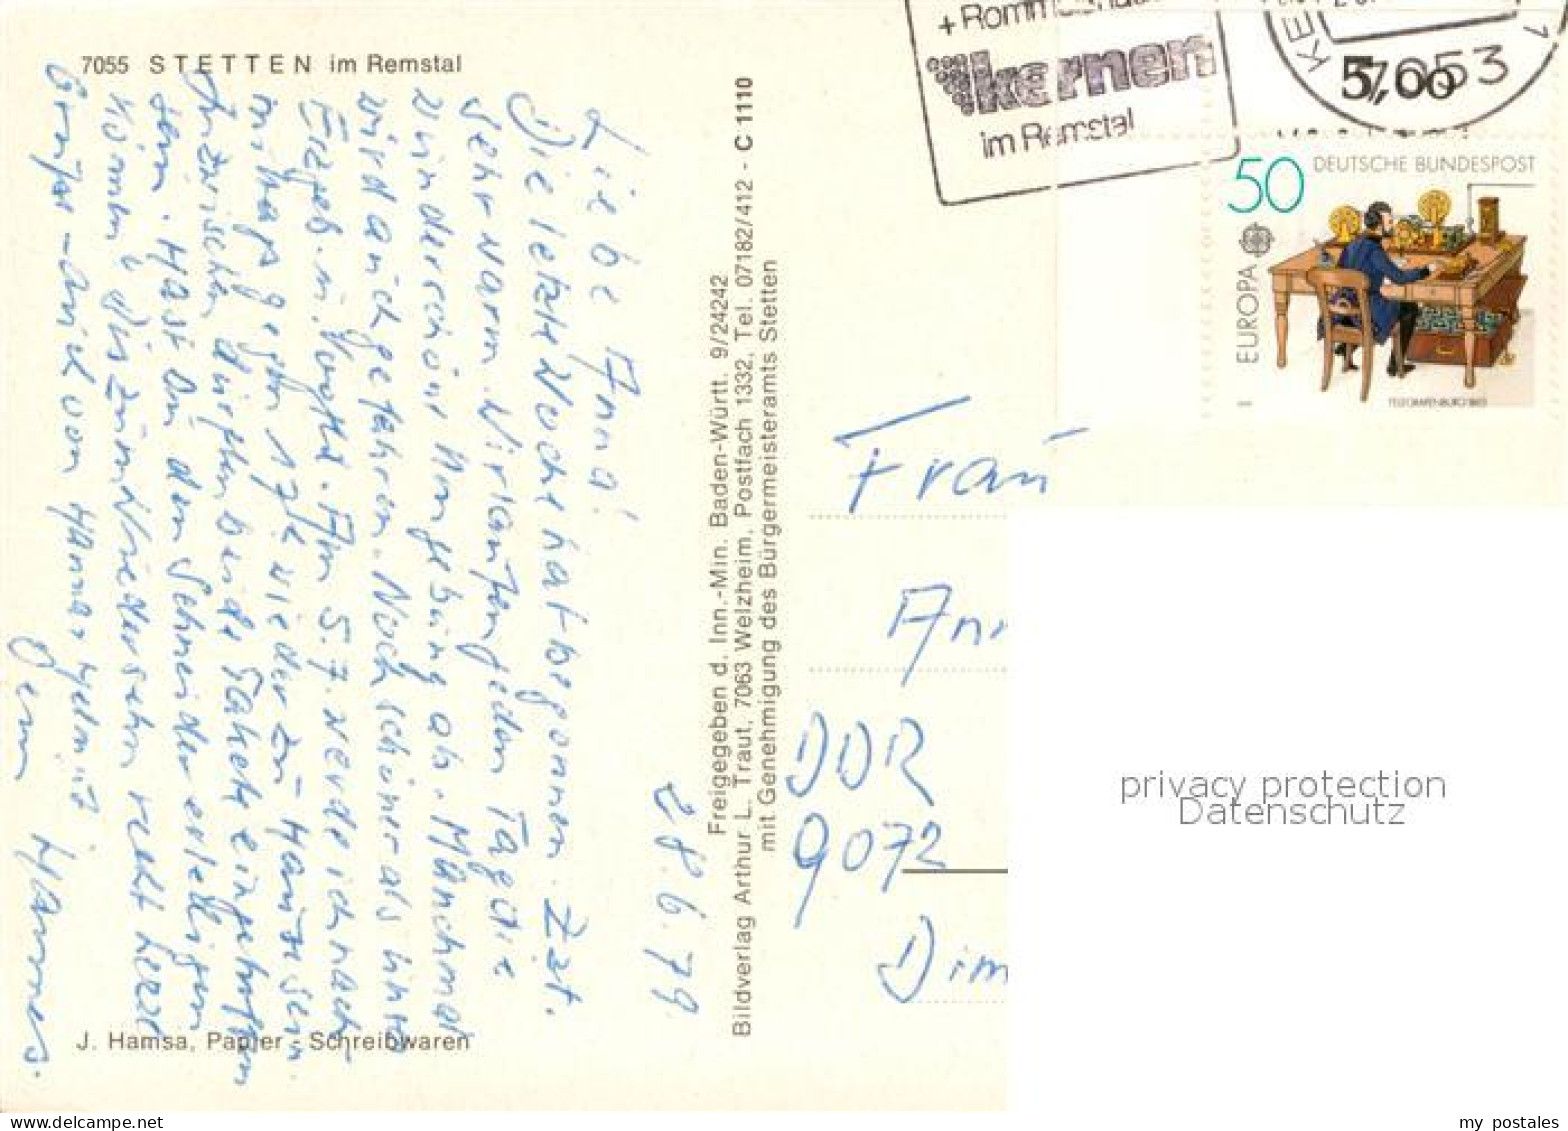 7055 STETTEN im Remstal
28.6.79
Liebe Anna!
Die letzte Woche hat begonnen. Zst.
sehr warm. Wir laufen jeden Tag die
wunderschöne Umgebung ab. Manchmal
wird auch gefahren. Noch schöner als unser
Erzgeb. u. Vogtld. Am 5.7. werde ich nach-
mittags gegen 17h wieder zu Hause sein.
Inzwischen dürften beide Pakete eingetroffen
sein. Hast Du den Schneider erledigen
können? Bis zum Wiedersehn recht herzl
Grüße - auch von Hanna, Helmut
Dein Hannes.
J. Hamsa, Papier - Schreibwaren
Freigegeben d. Inn.-Min. Baden-Württ. 9/24242
Bildverlag Arthur L. Traut, 7063 Welzheim, Postfach 1332, Tel. 07182/412 - C 1110
mit Genehmigung des Bürgermeisteramts Stetten
kernen
im Remstal
7053
5,60
50 DEUTSCHE BUNDESPOST
EUROPA
TELEGRAFENBÜRO 1863
Frau
Ann
DDR
9072
Dim
privacy protection
Datenschutz
my postales